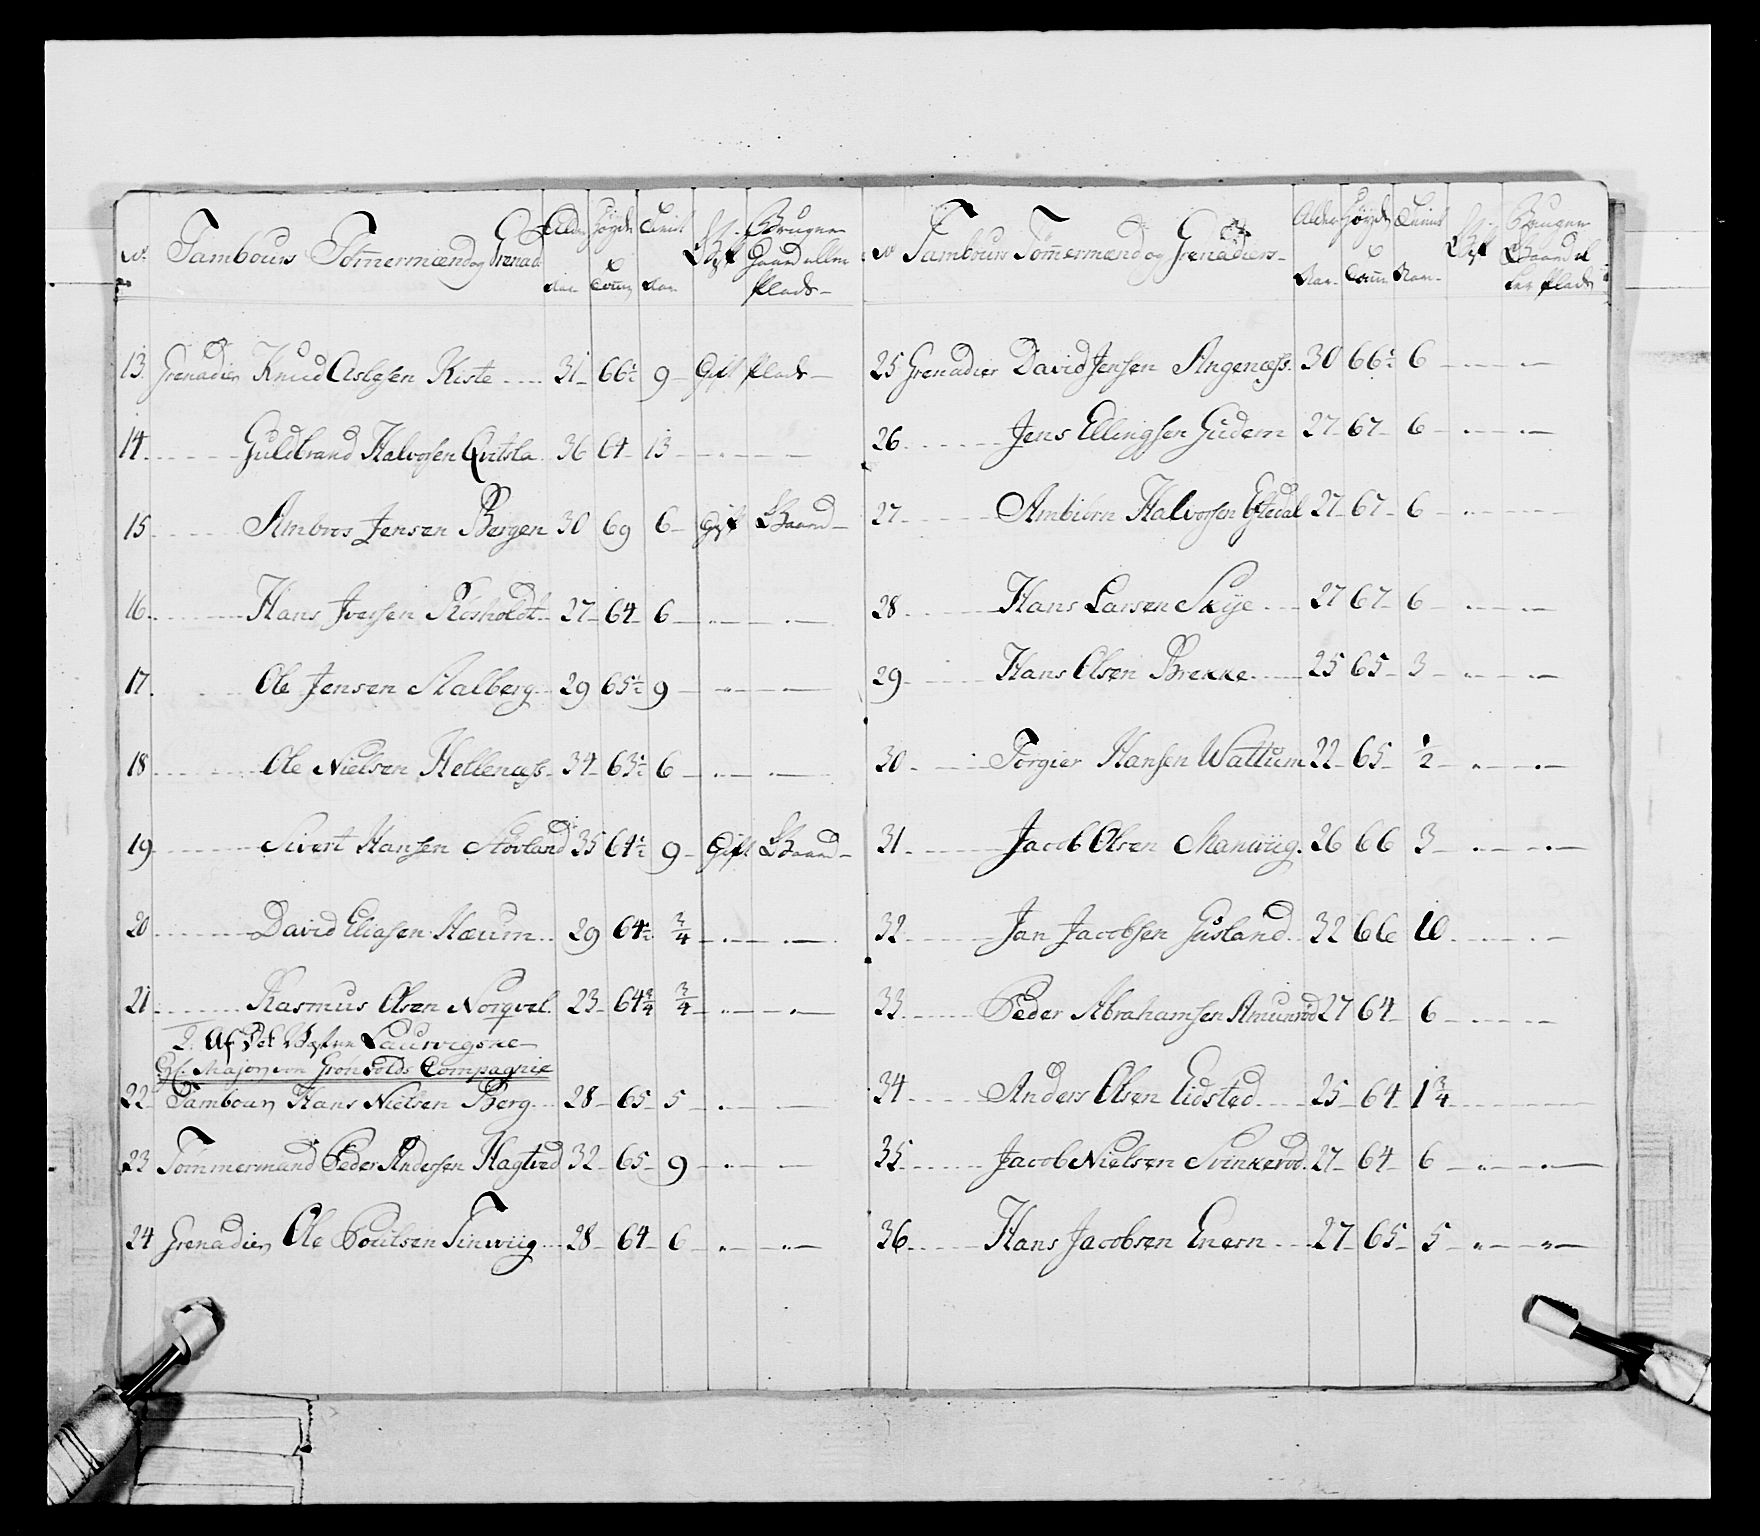 No. Tambours Tømermænd og Grenad Alder Aar Høyde Tomr Tient Aar Gift Bruger Gaard eller Plads
13. Grenadier Knud Aslagsen Kiste 31 66½ 9 Gift Plads
14. Guldbrand Halvorsen Qvitsla 36 64 13
15. Ambros Jensen Bergen 30 69 6 Gift Gaard
16. Hans Iversen Risholdt 27 64 6
17. Ole Jensen Aalberg 29 65½ 9
18. Ole Nielsen Hellenæss 34 63½ 6
19. Sivert Hansen Støvland 35 64½ 9 Gift Gaard
20 David Eliasen Hæum 29 64½ ¾
21. Rasmus Olsen Norqvel 23 64¾ ¾
2. Af Det Laurvigske
Major von Grønvolds Compagnie
22 Tambour Hans Nielsen Berg 28 65 5
23 Tømmermand Peder Andersen Hagtved 32 65 9
24 Grenadier Ole Poulsen Tinwiig 28 64 6
No Tambours Tømermænd og Grenadiers Alder Aar Høyde Tomr Tient Aar Gift Bruger Gaard el ler Plads
25 Grenadier David Jensen Angenæss 30 66½ 6
26 Jens Ellingsen Gudem 27 67 6
27 Ambiørn Halvorsen Eftedal 27 67 6
28 Hans Larsen Skye 27 67 6
29 Hans Olsen Brekke 25 65 3
30 Torgier Hansen Wattum 22 65 ½
31 Jacob Olsen Manwiig 26 66 3
32 Jan Jacobsen Gusland 32 66 10
33 Peder Abrahamsen Amunrød 27 64 6
34 Anders Olsen Eidsted 25 64 1¾
35 Jacob Nielsen Svinkerød 27 64 6
36 Hans Jacobsen Enern 27 65 5